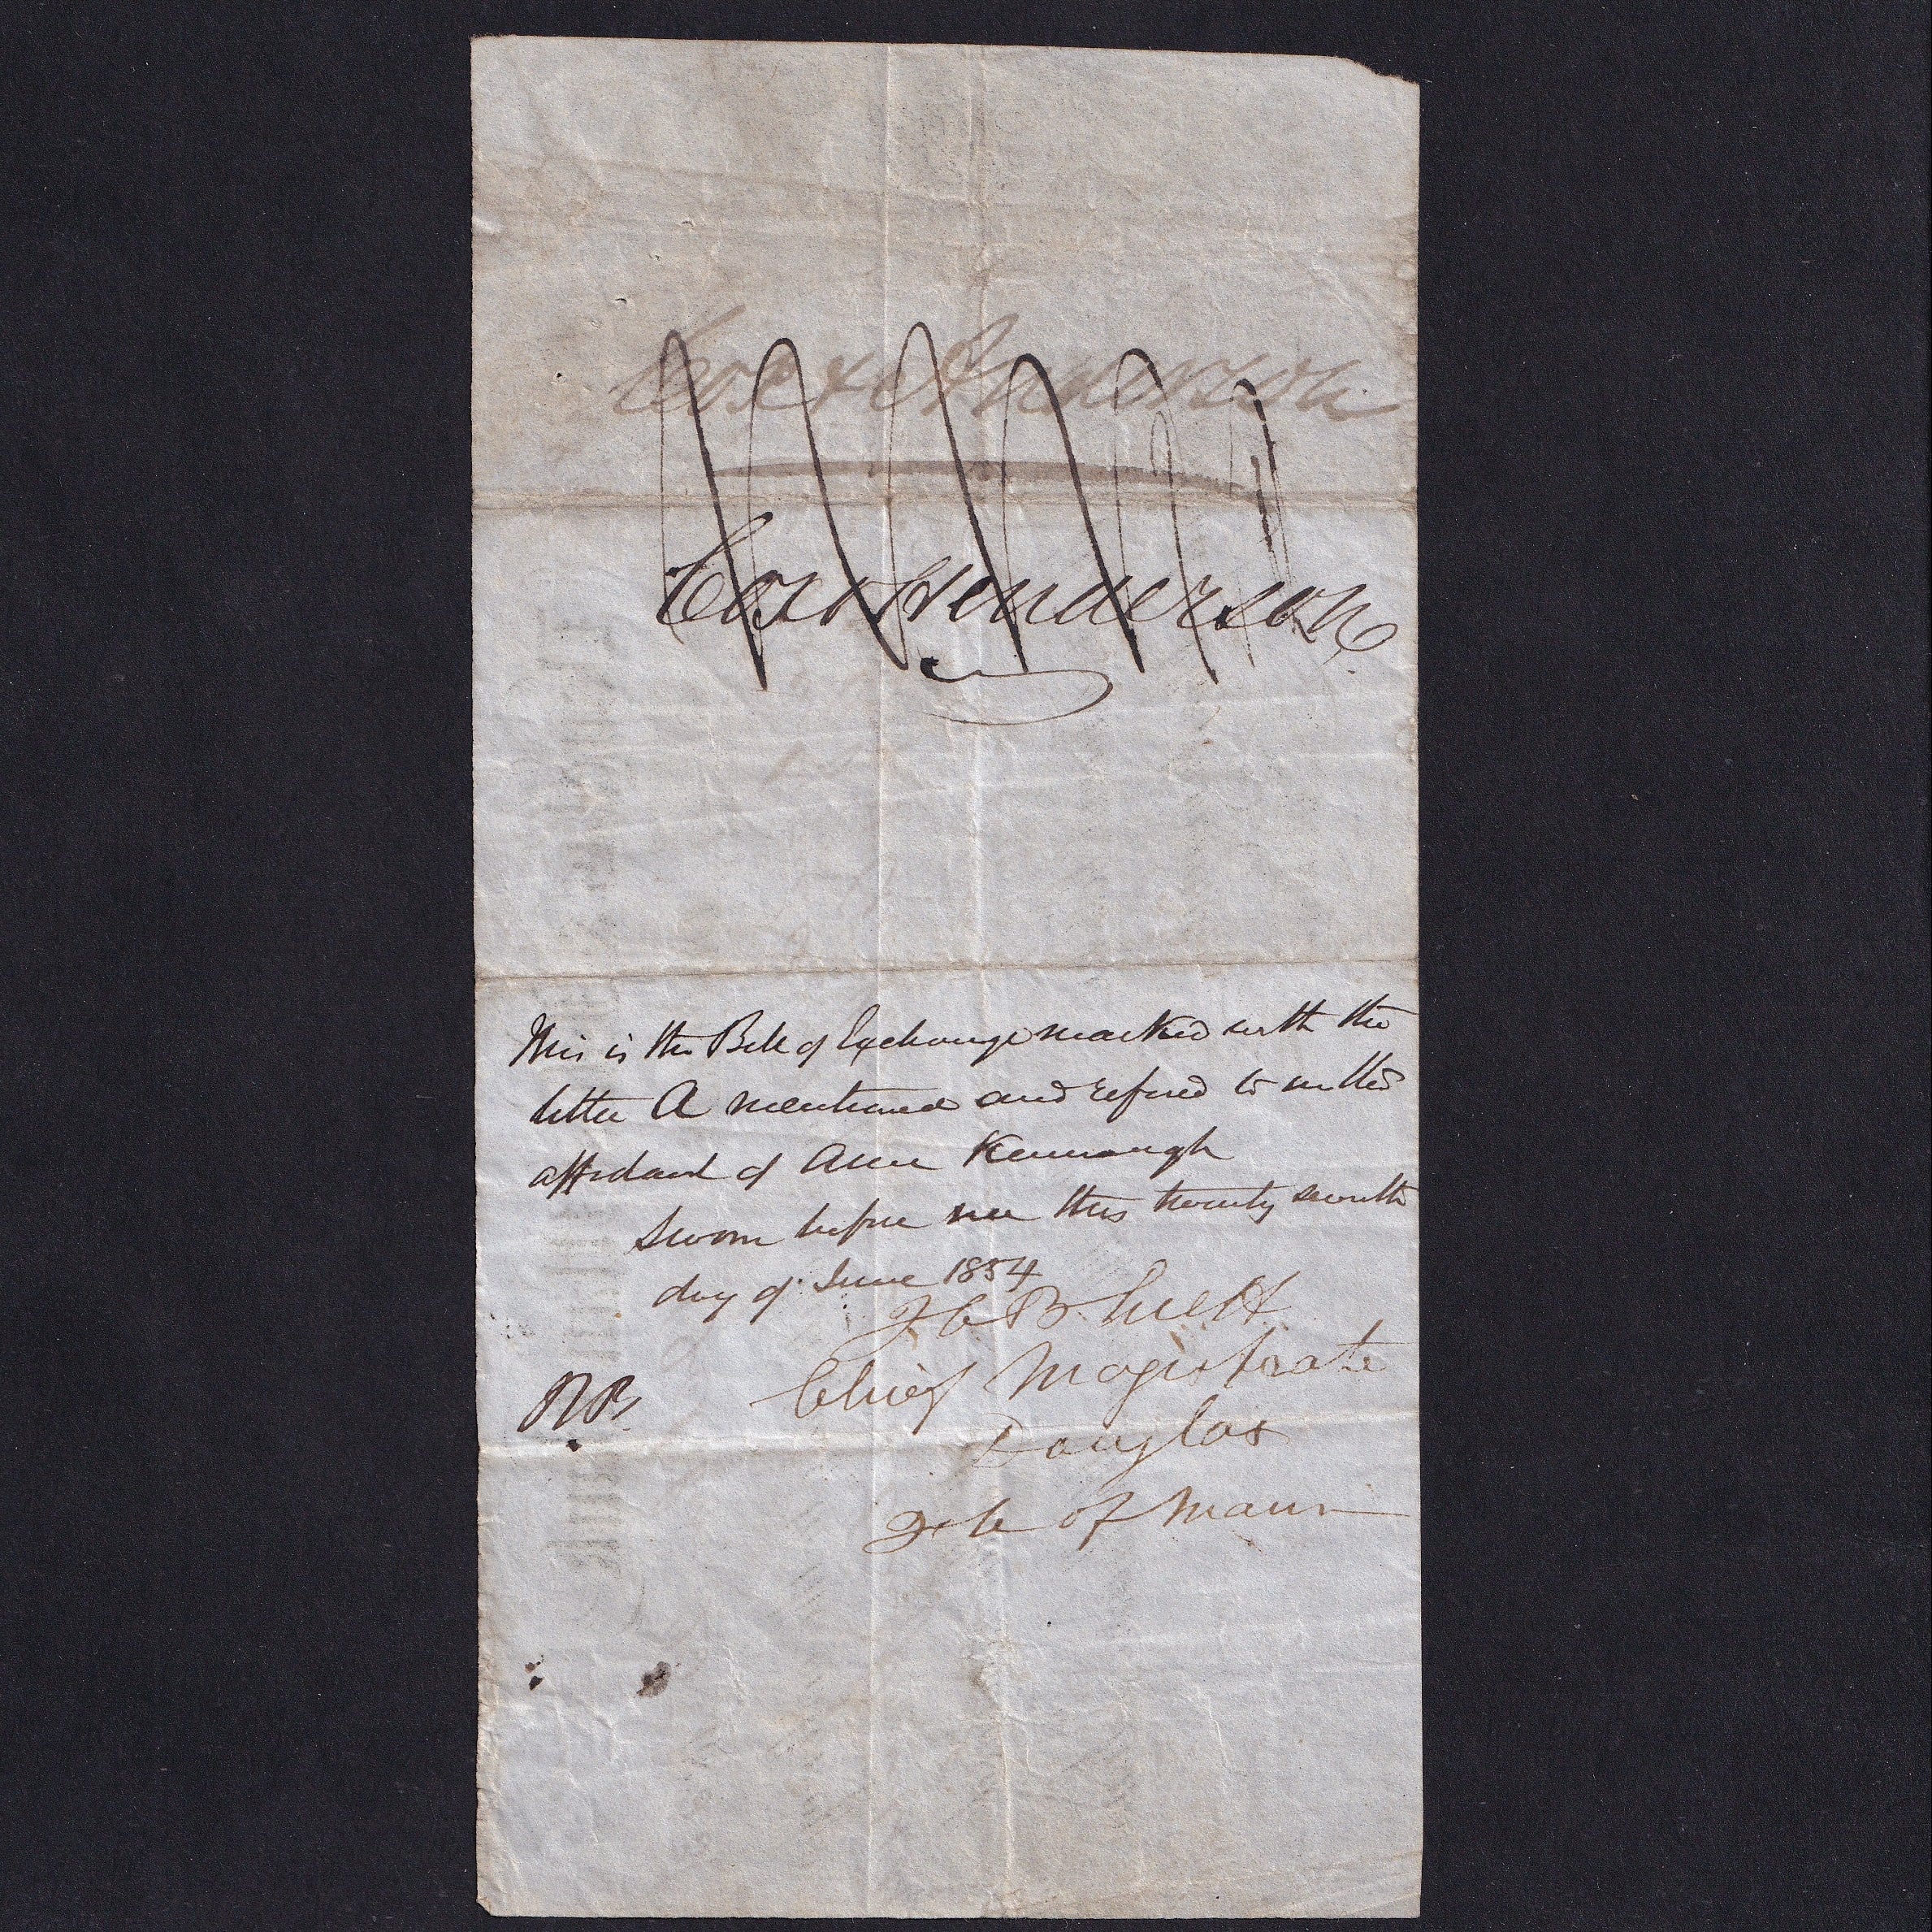 Cox & Henderson
Cox & Henderson
This is the Bill of Exchange marked with the
letter A mentioned and refered to in the
affidavit of Anne Kennaugh
Sworn before me this twenty seventh
day of June 1854
Chief Magistrate
Douglas
Isle of Mann